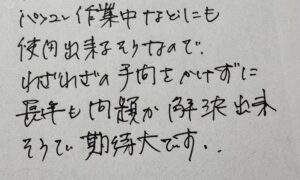 パソコン作業中などにも
使用出来るそうなので、
わざわざの手間をかけずに
長年も問題が解決出来
そうで期待大です..